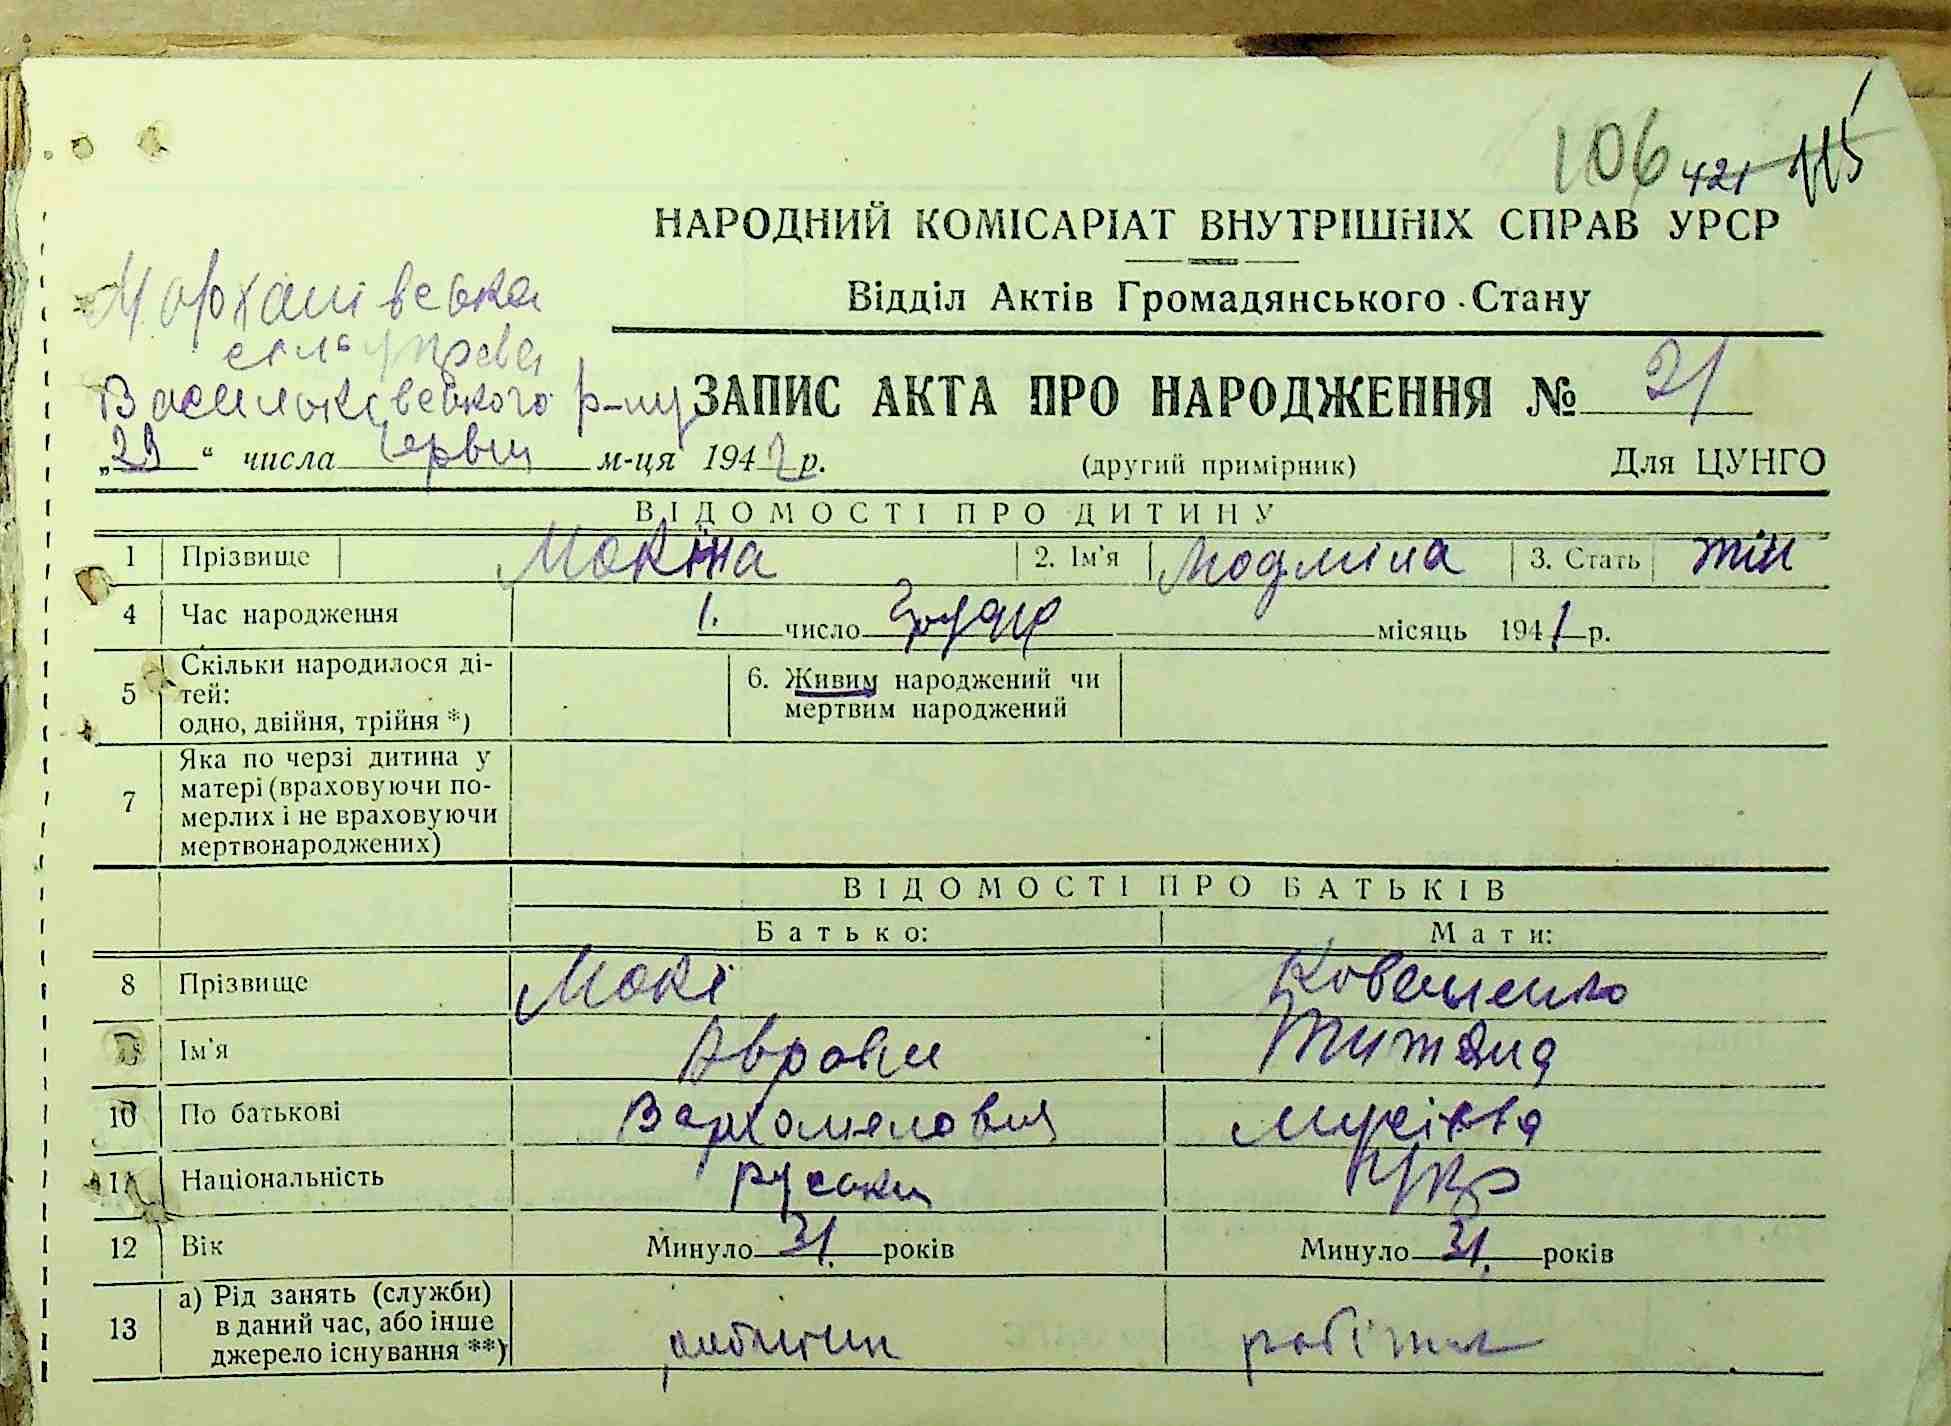 106 421 115
НАРОДНИЙ КОМІСАРІАТ ВНУТРІШНІХ СПРАВ УРСР
Відділ Актів Громадянського Стану
Мархалівська
управа
Васильківського р-ну
ЗАПИС АКТА ПРО НАРОДЖЕННЯ № 21
„29“ числа червня м-ця 1942 р.
(другий примірник) Для ЦУНГО
ВІДОМОСТІ ПРО ДИТИНУ
1 Прізвище Мокіна 2. Ім'я Людміла 3. Стать жін
4 Час народження 1. число грудня місяць 1941 р.
5 Скільки народилося ді-
тей:
одно, двійня, трійня *)
6. Живим народжений чи
мертвим народжений
7 Яка по черзі дитина у
матері (враховуючи по-
мерлих і не враховуючи
мертвонароджених)
ВІДОМОСТІ ПРО БАТЬКІВ
Батько: Мати:
8 Прізвище Мокі Коваленко
Ім'я Титяна
10 По батькові Мусіївна
11 Національність руский Укр
12 Вік Минуло 31. років Минуло 31. років
13 а) Рід занять (служби)
в даний час, або інше
джерело існування **)